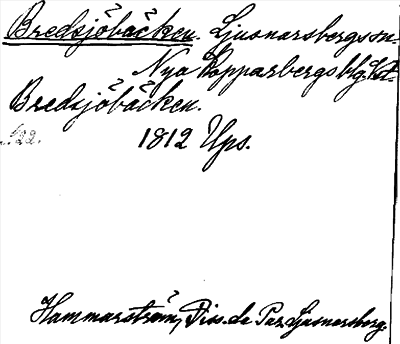 Bredsjöbäcken. Ljusnarsbergs sn.
Nya Kopparbergs blg
Bredsjöbäcken.
22.
1812 Ups.
Hammarström, Diss. de Par. Ljusnarsberg.